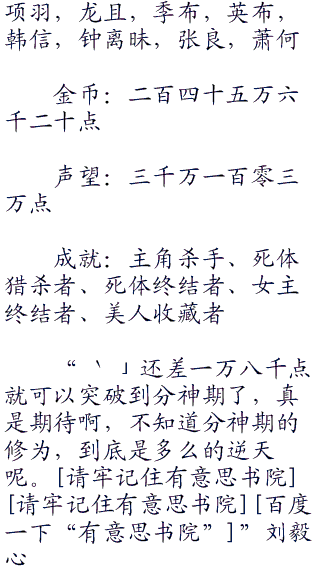 项羽，龙且，季布，英布，
韩信，钟离昧，张良，萧何
金币：二百四十五万六
千二十点
声望：三千万一百零三
万点
成就：主角杀手、死体
猎杀者、死体终结者、女主
终结者、美人收藏者
“｀」还差一万八千点
就可以突破到分神期了，真
是期待啊，不知道分神期的
修为，到底是多么的逆天
呢。[请牢记住有意思书院]
[请牢记住有意思书院][百度
一下“有意思书院”]”刘毅
心